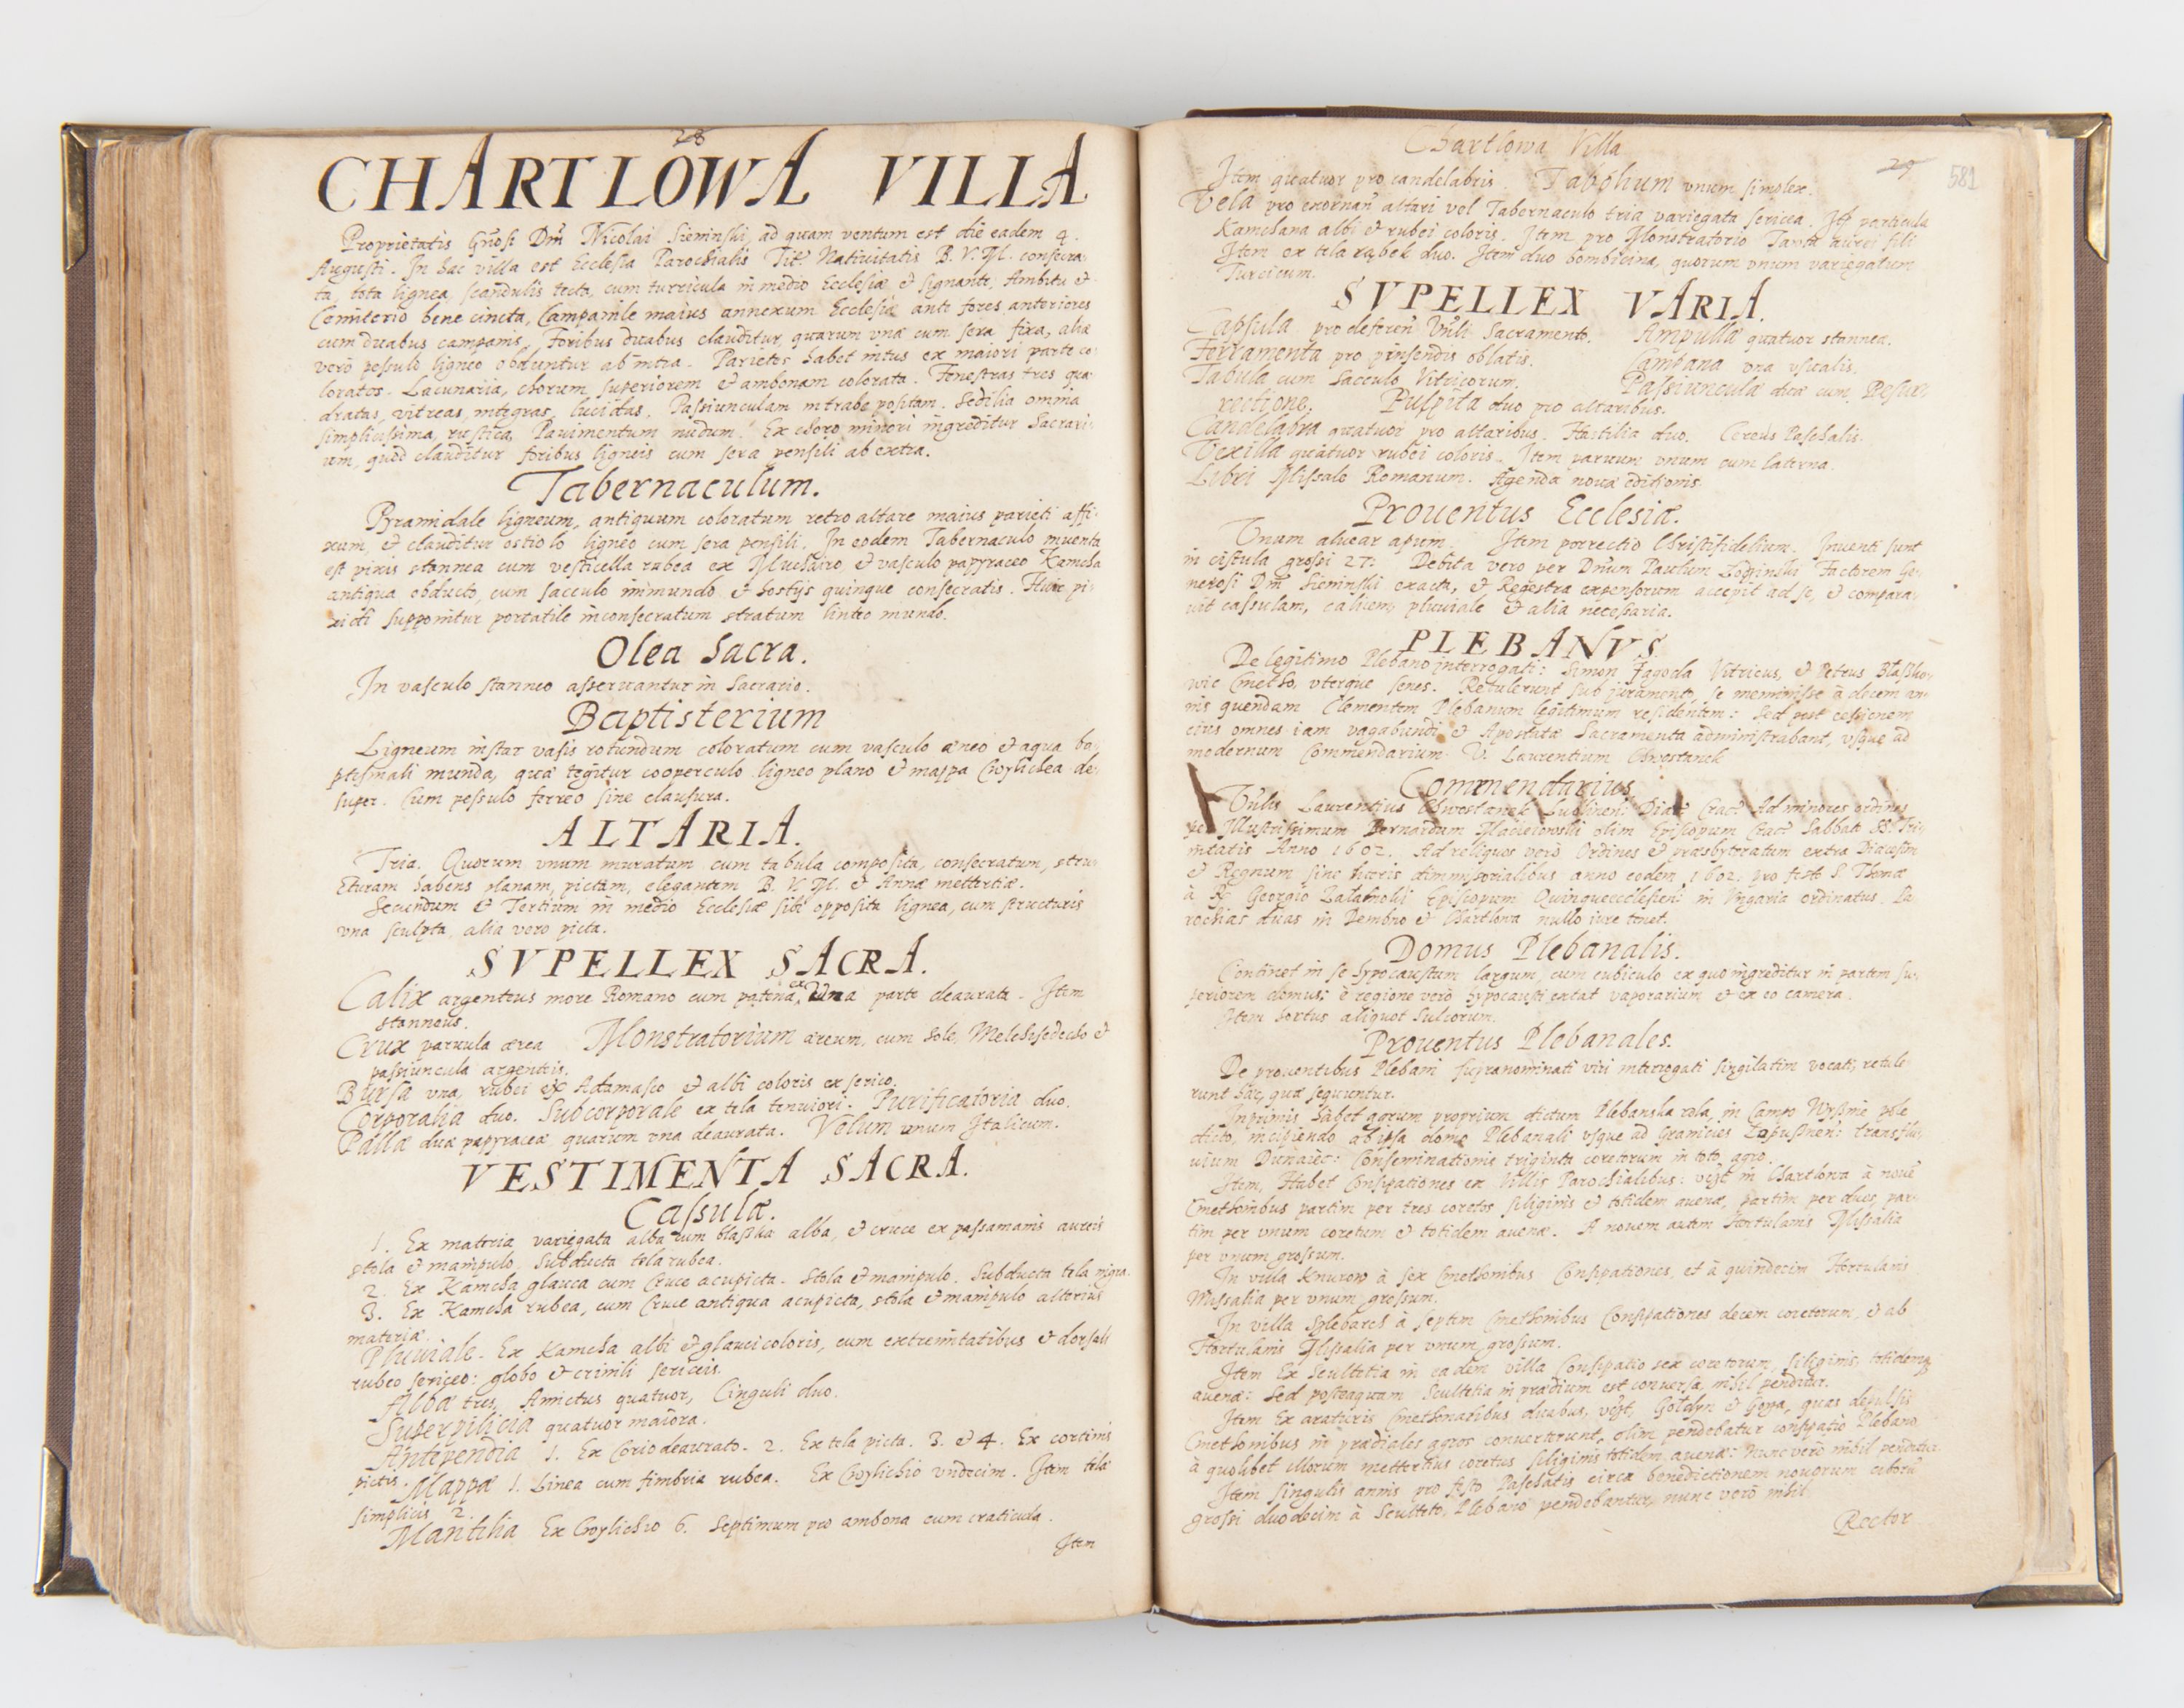 28
CHARTLOWA VILLA
Proprietatis Gnosi Dni Nicolai Sieminski, ad quam ventum est die eadem 4.
Augusti. In hac villa est Ecclesia Parochialis Tit. Natiuitatis B. V. M. consecra-
ta, tota lignea, scandulis tecta, cum turricula in medio Ecclesiæ & signante, Ambitu &
Cemiterio bene cincta, Campanile maius annexum Ecclesiæ ante fores anteriores
cum duabus campanis, Foribus duabus clauditur quarum una cum sera fixa, alia
verò pessulo ligneo obduntur ab intra. Parietes habet intus ex maiori parte co-
loratos. Lacunaria, chorum superiorem & ambonam colorata. Fenestras tres qua-
dratas, vitreas, integras, lucidas. Passiunculam in trabe positam. Sedilia omnia
simplicissima, rustica, Pauimentum nudum. Ex choro minori ingreditur Sacrari-
um, quod clauditur foribus ligneis cum sera pensili ab extra.
Tabernaculum.
Pyramidale ligneum, antiquum coloratum retro altare maius parieti affi-
xum, & clauditur ostiolo ligneo cum sera pensili. In eodem Tabernaculo inuenta
est pixis stannea cum vesticella rubea ex Muchairo & vasculo papyraceo Kamcha
antiqua obducto, cum sacculo immundo & hostijs quinque consecratis. Huic pi-
xidi supponitur portatile inconsecratum stratum linteo mundo.
Olea Sacra.
In vasculo stanneo asseruantur in Sacrario.
Baptisterium
Ligneum instar vasis rotundum coloratum cum vasculo æneo & aqua ba-
ptismali munda, quæ tegitur cooperculo ligneo plano & mappa Cwylichea de-
super. Cum pessulo ferreo sine clausura.
ALTARIA.
Tria. Quorum vnum muratum cum tabula composita, consecratum, stru-
cturam habens planam, pictam, elegantem B. V. M. & Annæ mettertiæ.
Secundum & Tertium in medio Ecclesiæ sibi opposita lignea, cum structuris
vna sculpta, alia vero picta.
SVPELLEX SACRA.
Calix argenteus more Romano cum patena ex vna parte deaurata. Item
stanneus.
Crux paruula ærea Monstratorium æreum, cum Sole, Melchisedecho &
passiuncula argenteis.
Bursa vna, rubei ex Adamasco & albi coloris ex serico.
Corporalia duo. Subcorporale ex tela tenuiori. Purificatoria duo.
Pallæ duæ papyraceæ quarum vna deaurata. Velum vnum Italicum.
VESTIMENTA SACRA.
Casulæ.
1. Ex materia variegata alba cum blasska alba, & cruce ex passamanis aureis
stola & manipulo, Subducta tela rubea.
2. Ex Kamcha glauca cum Cruce acupicta. Stola & manipulo. Subducta tela nigra.
3. Ex Kamcha rubea, cum Cruce antiqua acupicta, stola & manipulo alterius
materiæ.
Pluuiale. Ex Kamcha albi & glauci coloris, cum extremitatibus & dorsali
rubeo sericeo: globo & crinili sericeis.
Albæ tres, Amictus quatuor, Cinguli duo.
Superpilicia quatuor maiora.
Antependia 1. Ex Corio deaurato. 2. Ex tela picta. 3. & 4. Ex cortinis
pictis. Mappæ 1. Linea cum fimbria rubea. Ex Cwylichio vndecim. Item telæ
simplicis 2.
Mantilia Ex Cwylichio 6. Septimum pro ambona cum craticula.
Item
Chartlowa Villa
29 581
Item quatuor pro candelabris. Tobolium vnum simplex.
Vela pro exornan altari vel Tabernaculo tria variegata sericea. Itq particula
Kamchana albi & rubei coloris. Item pro Monstratorio aurei fili
Item ex tela rąbek duo. Item duo bombicina, quorum vnum variegatum
Turcicum.
SVPELLEX VARIA.
Capsula pro deferen Vnli Sacramento. Ampullæ quatuor stanneæ.
Ferramenta pro pinsendis oblatis. Campana vna vsualis.
Tabula cum Sacculo Vitricorum. Passiunculæ duæ cum Resur-
rectione. Pulpita duo pro altaribus.
Candelabra quatuor pro altaribus. Hastilia duo. Cereus Paschalis.
Vexilla quatuor rubei coloris. Item paruum vnum cum laterna.
Libri Missale Romanum. Agenda nouæ editionis.
Prouentus Ecclesiæ.
Vnum aluear apum. Item porrectio Christifidelium. Inuenti sunt
in cistula grossi 27: Debita vero per Dnum Paulum Factorem Ge-
nerosi Dni Sieminski exacta, & Regestra expensorum accepit ad se, & compara-
uit casulam, calicem, pluuiale & alia necessaria.
PLEBANVS
De legitimo Plebano interrogati: Simon Jagoda Vitricus, & Petrus Blasko-
wic Cmetho, vterque senes. Retulerunt sub juramento, se meminisse à decem an-
nis quendam Clementem Plebanum legitimum residentem: Sed post cessionem
eius omnes iam vagabundi & Apostatæ Sacramenta administrabant, vsque ad
modernum Commendarium V. Laurentium Chwostanek
Commendarius
Vnlis Laurentius Chwostanek Lublinen: Diæc Crac Ad minores ordines
per Illustrissimum Bernardum Macieiowski olim Episcopum Crac Sabbato SS. Tri-
nitatis Anno 1602. Ad reliquos verò Ordines & præsbyteratum extra Diæcesim
& Regnum sine literis dimissorialibus anno eodem 1602. pro festo S. Thomæ
à R Georgio Zalatnoki Episcopum Quinqueecclesien: in Vngaria ordinatus. Pa-
rochias duas in Dembno & Chartlowa nullo iure tenet.
Domus Plebanalis.
Continet in se hypocaustum largum, cum cubiculo ex quo ingreditur in partem su-
periorem domus: è regione verò hypocausti extat vaporarium & ex eo camera.
Item hortus aliquot Sulcorum.
Prouentus Plebanales.
De prouentibus Plebani supranominati viri interrogati singilatim vocati, retule-
runt hæc, quæ sequuntur.
Inprimis habet agrum proprium dictum Plebanska rola, in Campo Wyssnie pole
dicto, incipiendo ab ipsa domo Plebanali vsque ad Granicies Lopussnen: transflu-
uium Dunaiec: Conseminationis triginta coretorum in toto agro.
Item, Habet Consipationes ex Villis Parochialibus: vzt in Chartlowa à nouē
Cmethonibus partim per tres coretos siliginis & totidem auenæ, partim per duos, par-
tim per vnum coretum & totidem auenæ. A nouem autem Hortulanis Missalia
per vnum grossum.
In villa Knurow à sex Cmethonibus Consipationes, et à quindecim Hortulanis
Missalia per vnum grossum.
In villa Sglebarch à septem Cmethonibus Consipationes decem coretorum, & ab
Hortulanis Missalia per vnum grossum.
Item Ex Scultetia in eadem villa Consipatio sex coretorum, siliginis, totidemq
auenæ: Sed posteaquam Scultetia in prædium est conuersa nihil penditur.
Item Ex araturis Cmethonalibus duabus, vzt, Goldyn & Goyya, quas depulsis
Cmethonibus in prædiales agros conuerterunt, olim pendebatur consipatio Plebano
à quolibet illorum mettertius coretus siliginis totidem auenæ: Nunc verò nihil penditur.
Item singulis annis pro festo Paschatis circa benedictionem nouorum ciborū
grossi duodecim à Sculteto, Plebano pendebantur, nunc verò nihil.
Rector